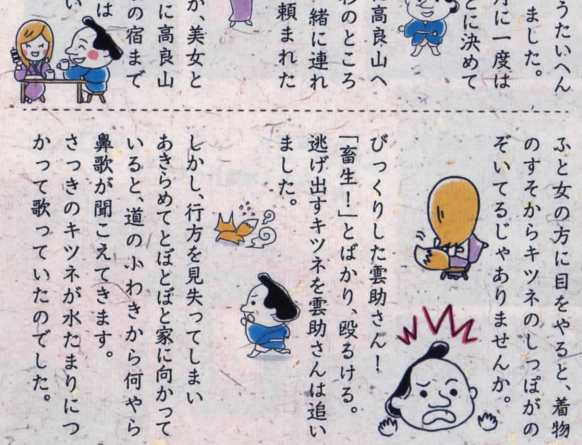 うたいへん
ました。
に一度は
とに決めて
に高良山へ
のところ
緒に連れ
頼まれた
、美女と
に高良山
の宿まで
は
い
ふと女の方に目をやると、着物
のすそからキツネのしっぽがの
ぞいてるじゃありませんか。
びっくりした雲助さん！
「畜生！」とばかり、殴るける。
逃げ出すキツネを雲助さんは追い
ました。
しかし、行方を見失ってしまい
あきらめてとぼとぼと家に向かって
いると、道の小わきから何やら
鼻歌が聞こえてきます。
さっきのキツネが水たまりにつ
かって歌っていたのでした。